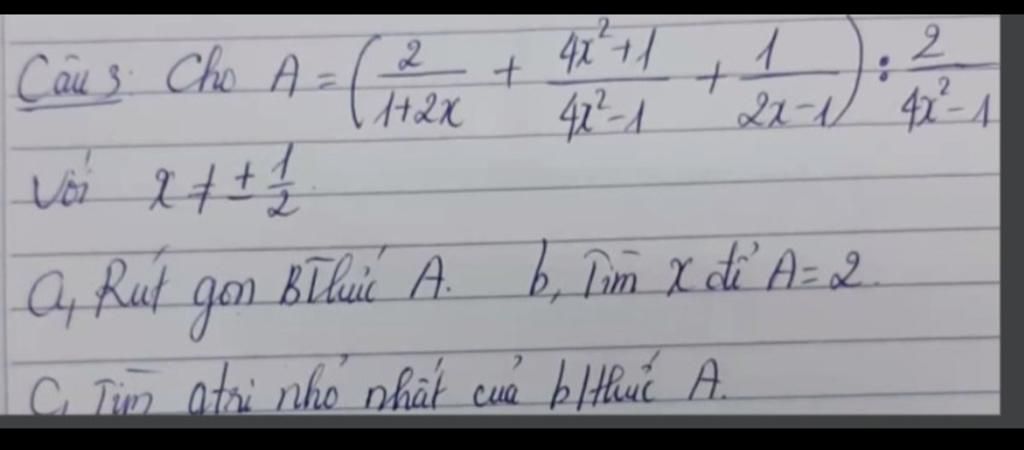 Câu 3: Cho A = (2/(1+2x) + (4x²+1)/(4x²-1) + 1/(2x-1)) : 2/(4x²-1)
Với x ≠ ± 1/2.
a, Rút gọn BThức A. b, Tìm x để A = 2.
c, Tìm gtri nhỏ nhất của b/thức A.